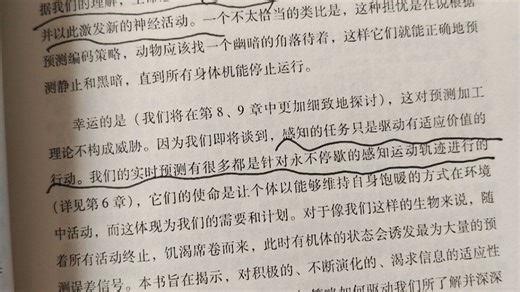 并以此激发新的神经活动。一个不太恰当的类比是，这种担忧是在说根据
预测编码策略，动物应该找一个幽暗的角落待着，这样它们就能正确地预
测静止和黑暗，直到所有身体机能停止运行。
幸运的是（我们将在第 8、9 章中更加细致地探讨），这对预测加工
理论不构成威胁。因为我们即将谈到，感知的任务只是驱动有适应价值的
行动。我们的实时预测有很多都是针对永不停歇的感知运动轨迹进行的
（详见第 6 章），它们的使命是让个体以能够维持自身饱暖的方式在环境
中活动，而这体现为我们的需要和计划。对于像我们这样的生物来说，随
着所有活动终止，饥渴席卷而来，此时有机体的状态会诱发最为大量的预
测误差信号。本书旨在揭示，对积极的、不断演化的、渴求信息的适应性
如何驱动我们所了解并深深